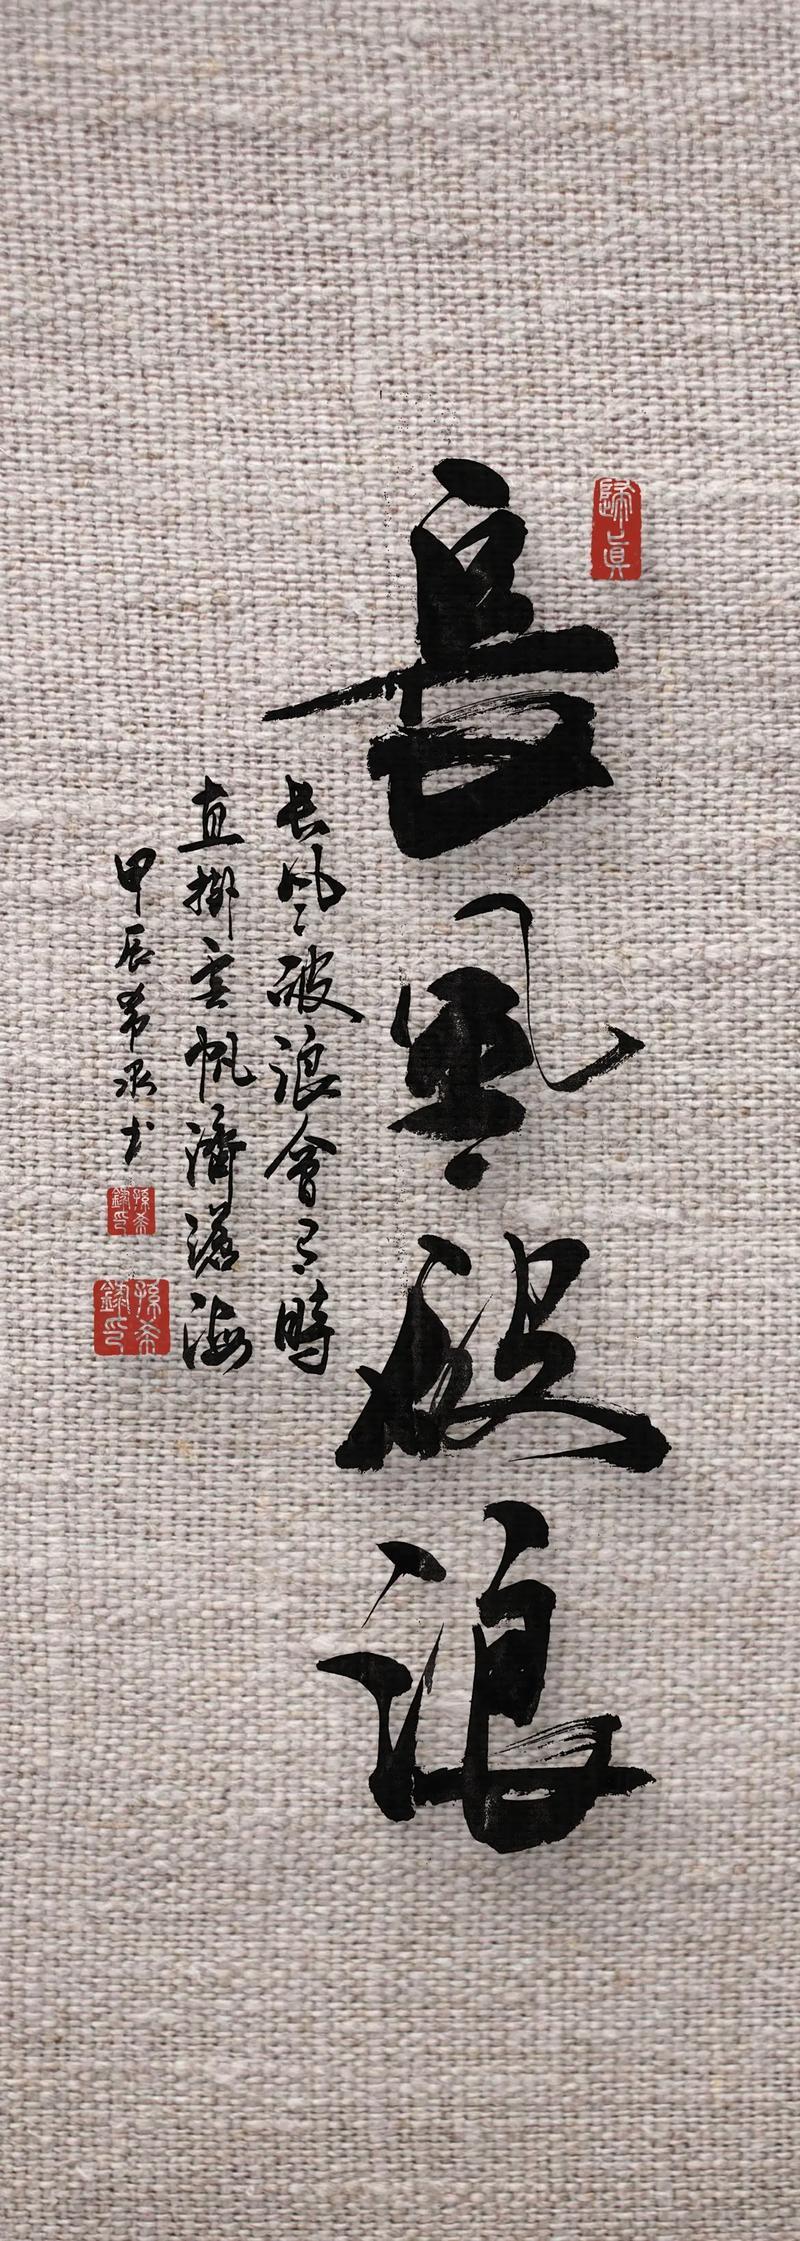 歸真
長風破浪
長風破浪會有時
直掛雲帆濟滄海
甲辰希书